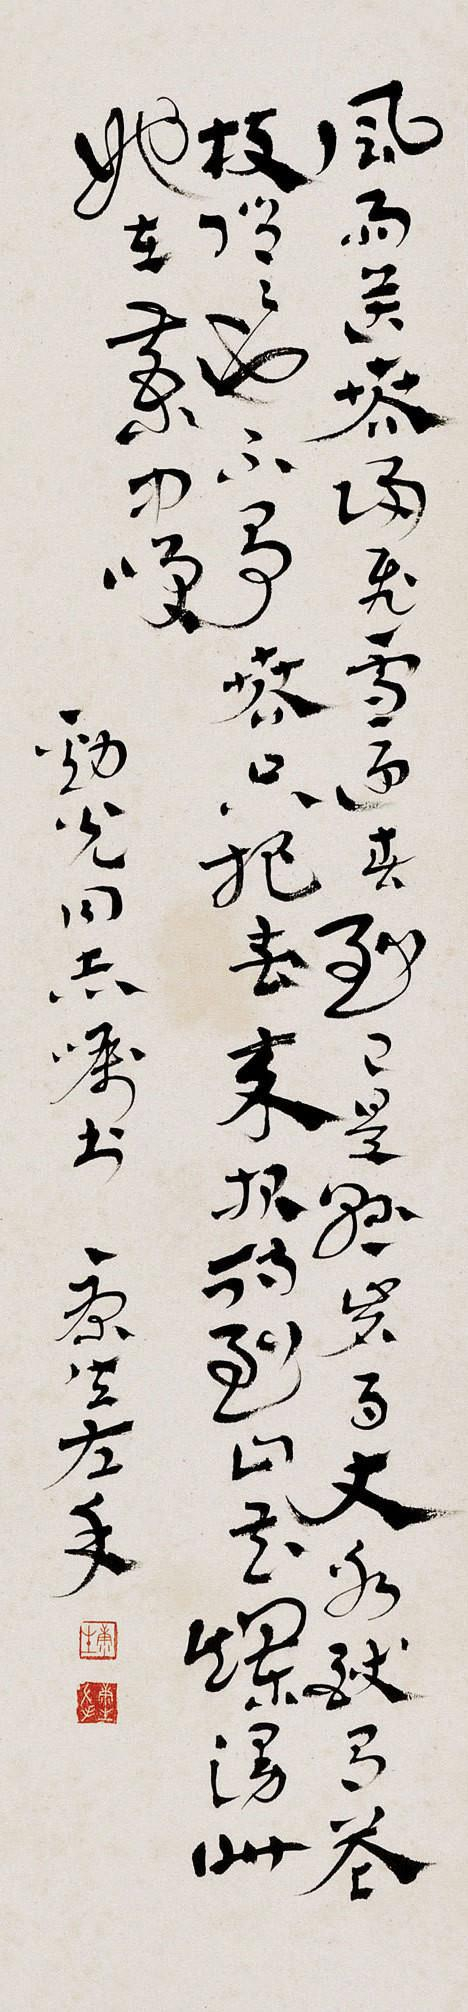 風雨送春歸飛雪迎春到已是懸崖百丈冰猶有花
枝俏俏也不爭春只把春來报待到山花爛漫時
她在叢中咲
勁光同志嘱书 康生左手
康生